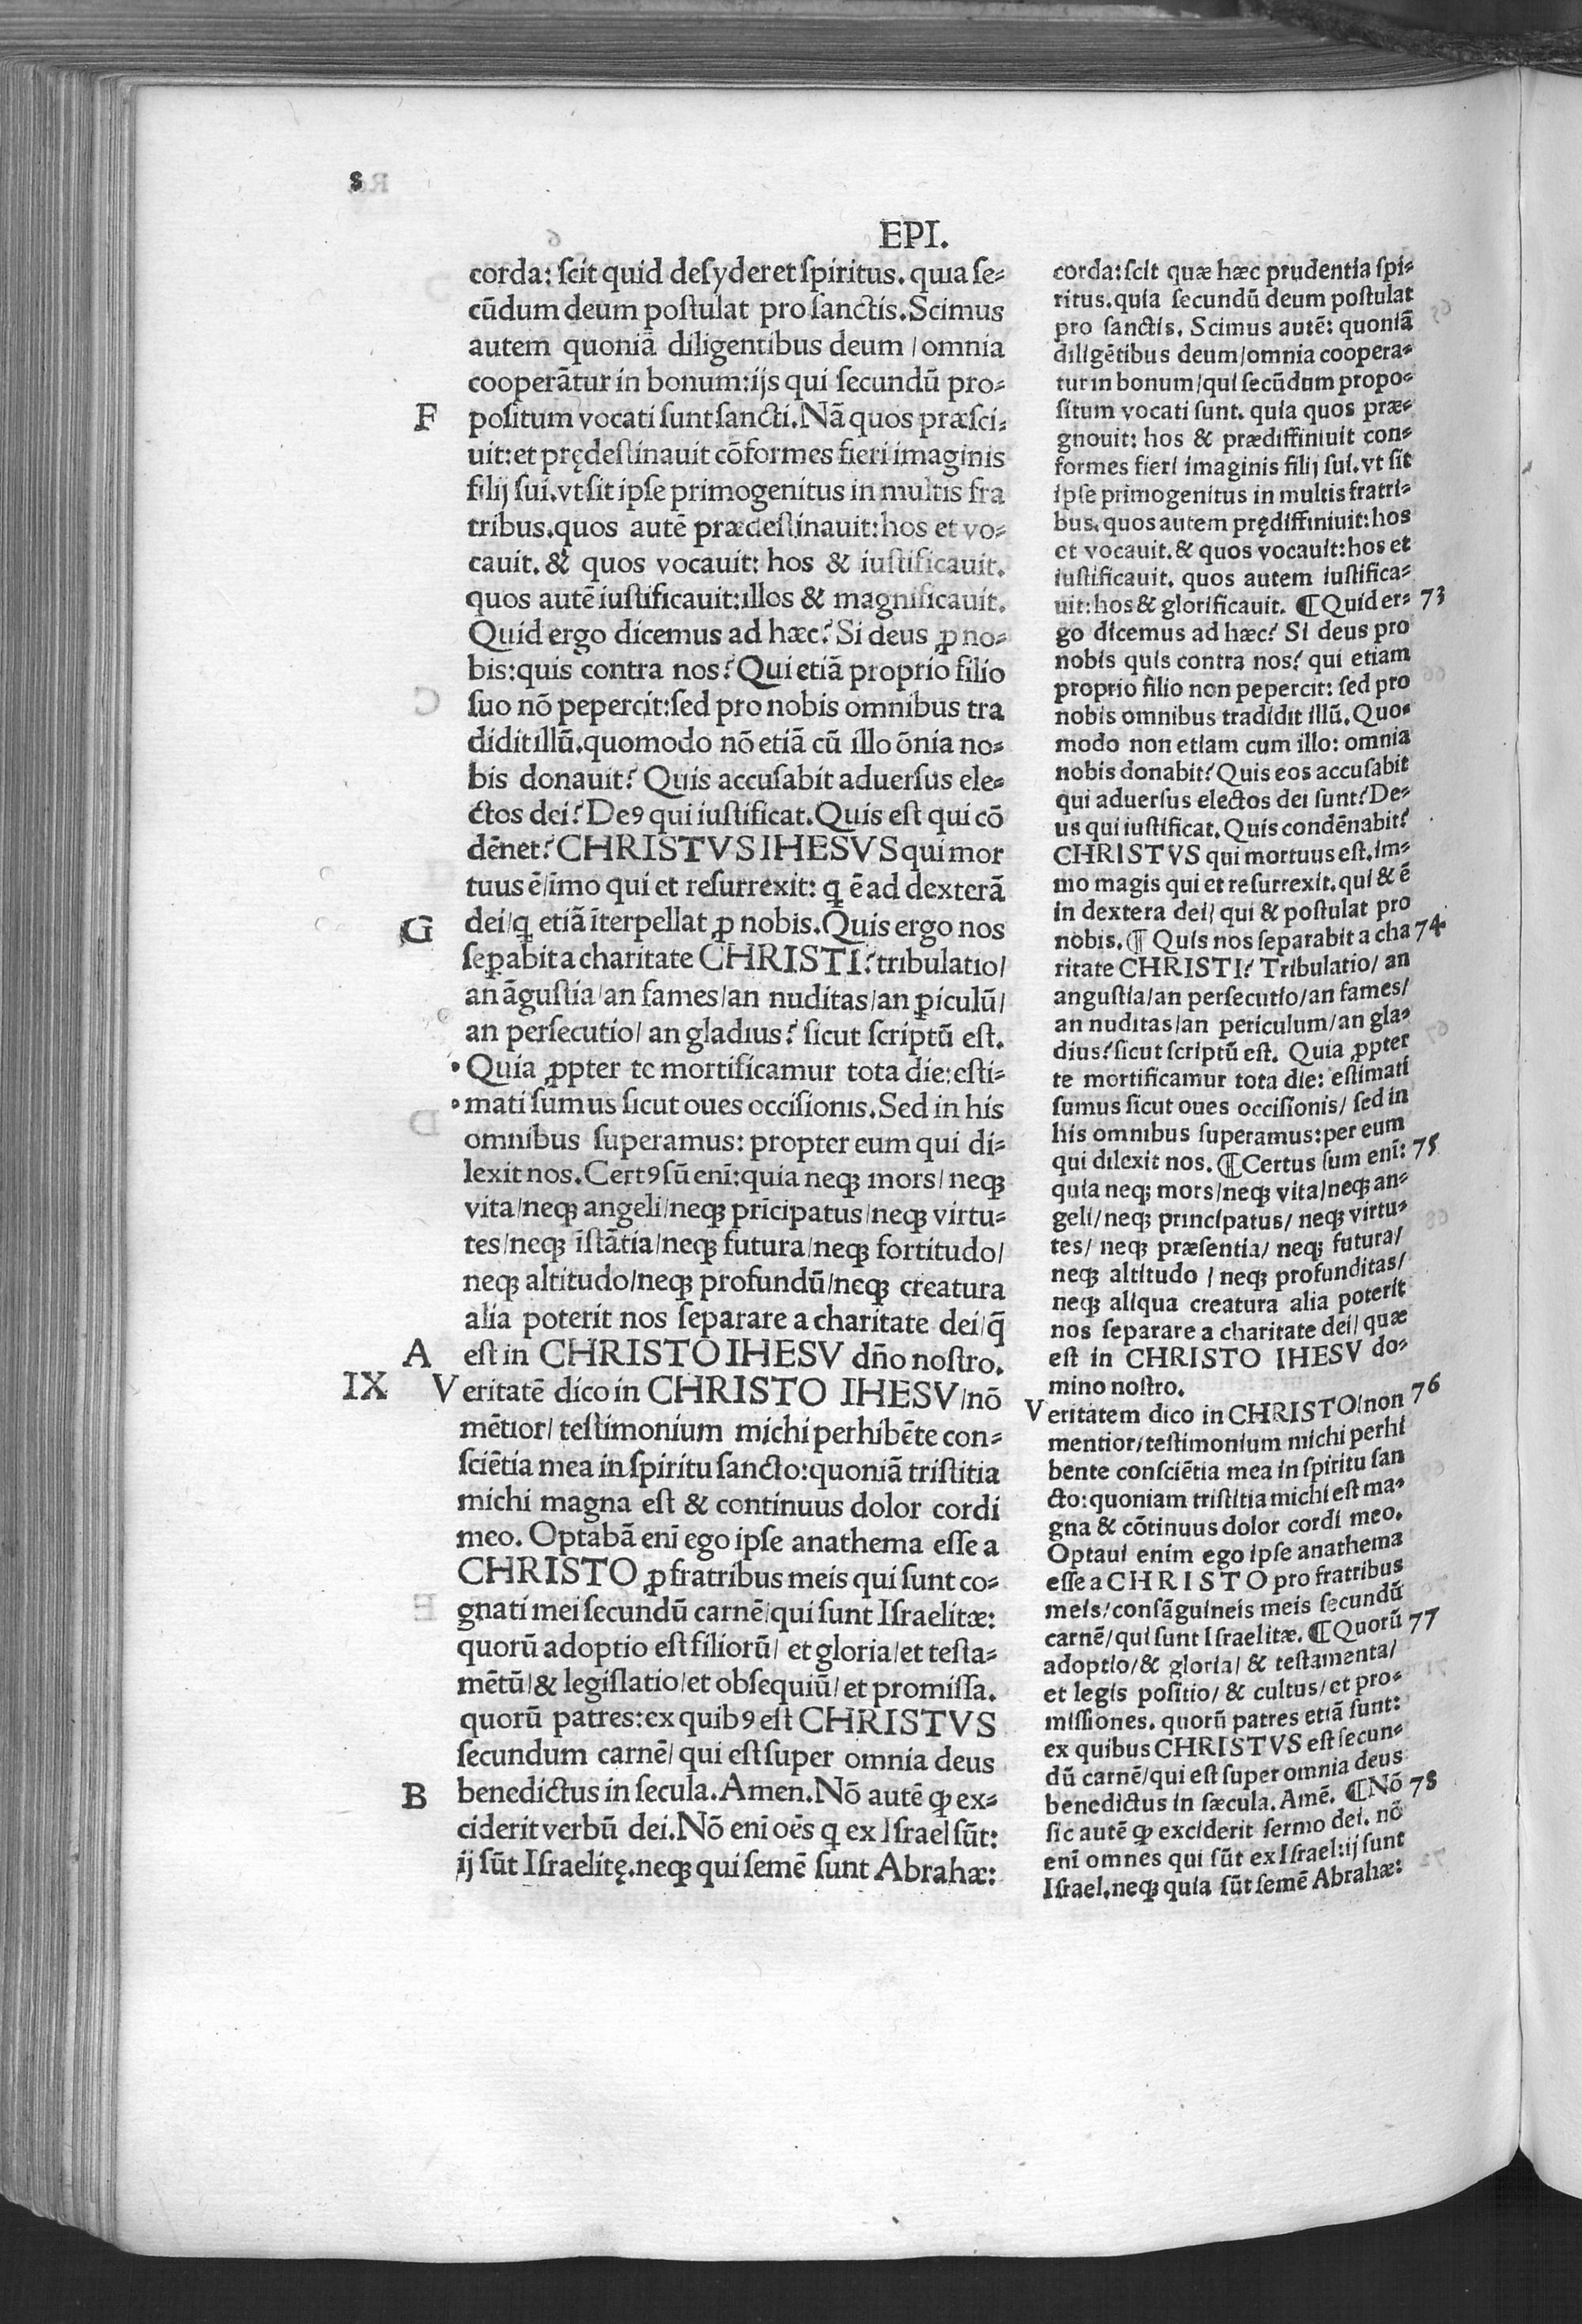 s
EPI.
corda: scit quid desyderet spiritus. quia se-
cūdum deum postulat pro sanctis. Scimus
autem quoniā diligentibus deum / omnia
cooperātur in bonum: ijs qui secundū pro-
F positum vocati sunt sancti. Nā quos præsci-
uit: et prędestinauit cōformes fieri imaginis
filij sui. vt sit ipse primogenitus in multis fra
tribus. quos autē prædestinauit: hos et vo-
cauit. & quos vocauit: hos & iustificauit.
quos autē iustificauit: illos & magnificauit.
Quid ergo dicemus ad hæc? Si deus ꝓ no-
bis: quis contra nos? Qui etiā proprio filio
suo nō pepercit: sed pro nobis omnibus tra
didit illū. quomodo nō etiā cū illo ōnia no-
bis donauit? Quis accusabit aduersus ele-
ctos dei? Deꝰ qui iustificat. Quis est qui cō
dēnet? CHRISTVS IHESVS qui mor
tuus ē / īmo qui et resurrexit: ꝗ ē ad dexterā
G dei / ꝗ etiā īterpellat ꝓ nobis. Quis ergo nos
seꝑabit a charitate CHRISTI? tribulatio /
an āgustia / an fames / an nuditas / an ꝑiculū /
an persecutio / an gladius? sicut scriptū est.
• Quia ꝓpter te mortificamur tota die: esti-
• mati sumus sicut oues occisionis. Sed in his
omnibus superamus: propter eum qui di-
lexit nos. Certꝰ sū enī: quia neqꝫ mors / neqꝫ
vita / neqꝫ angeli / neqꝫ prīcipatus / neqꝫ virtu-
tes / neqꝫ īstātia / neqꝫ futura / neqꝫ fortitudo /
neqꝫ altitudo / neqꝫ profundū / neqꝫ creatura
alia poterit nos separare a charitate dei / q̄
A est in CHRISTO IHESV dn̄o nostro.
IX Veritatē dico in CHRISTO IHESV / nō
mētior / testimonium michi perhibēte con-
sciētia mea in spiritu sancto: quoniā tristitia
michi magna est & continuus dolor cordi
meo. Optabā enī ego ipse anathema esse a
CHRISTO ꝓ fratribus meis qui sunt co-
gnati mei secundū carnē / qui sunt Israelitæ:
quorū adoptio est filiorū / et gloria / et testa-
mētū / & legislatio / et obsequiū / et promissa.
quorū patres: ex quibꝰ est CHRISTVS
secundum carnē / qui est super omnia deus
B benedictus in secula. Amen. Nō autē ꝙ ex-
ciderit verbū dei. Nō enī oēs ꝗ ex Israel sūt:
ij sūt Israelitę. neqꝫ qui semē sunt Abrahæ:
corda: scit quæ hæc prudentia spi-
ritus. quia secundū deum postulat
pro sanctis. Scimus autē: quoniā
diligētibus deum / omnia coopera-
tur in bonum / qui secūdum propo-
situm vocati sunt. quia quos præ-
gnouit: hos & prædiffiniuit con-
formes fieri imaginis filij sui. vt sit
ipse primogenitus in multis fratri-
bus. quos autem prędiffiniuit: hos
et vocauit. & quos vocauit: hos et
iustificauit. quos autem iustifica-
uit: hos & glorificauit. ¶ Quid er- 73
go dicemus ad hæc? Si deus pro
nobis quis contra nos? qui etiam
proprio filio non pepercit: sed pro
nobis omnibus tradidit illū. Quo-
modo non etiam cum illo: omnia
nobis donabit? Quis eos accusabit
qui aduersus electos dei sunt? De-
us qui iustificat. Quis condēnabit?
CHRISTVS qui mortuus est. im-
mo magis qui et resurrexit. qui & ē
in dextera dei / qui & postulat pro
nobis. ¶ Quis nos separabit a cha 74
ritate CHRISTI? Tribulatio / an
angustia / an persecutio / an fames /
an nuditas / an periculum / an gla-
dius? sicut scriptū est. Quia ꝓpter
te mortificamur tota die: estimati
sumus sicut oues occisionis / sed in
his omnibus superamus: per eum
qui dilexit nos. ¶ Certus sum enī: 75
quia neqꝫ mors / neqꝫ vita / neqꝫ an-
geli / neqꝫ principatus / neqꝫ virtu-
tes / neqꝫ præsentia / neqꝫ futura /
neqꝫ altitudo / neqꝫ profunditas /
neqꝫ aliqua creatura alia poterit
nos separare a charitate dei / quæ
est in CHRISTO IHESV do-
mino nostro.
Veritatem dico in CHRISTO / non 76
mentior / testimonium michi perhi
bente consciētia mea in spiritu san
cto: quoniam tristitia michi est ma-
gna & cōtinuus dolor cordi meo.
Optaui enim ego ipse anathema
esse a CHRISTO pro fratribus
meis / consāguineis meis secundū
carnē / qui sunt Israelitæ. ¶ Quorū 77
adoptio / & gloria / & testamenta /
et legis positio / & cultus / et pro-
missiones. quorū patres etiā sunt:
ex quibus CHRISTVS est secun-
dū carnē / qui est super omnia deus
benedictus in sæcula. Amē. ¶ Nō 78
sic autē ꝙ exciderit sermo dei. nō
enī omnes qui sūt ex Israel: ij sunt
Israel. neqꝫ quia sūt semē Abrahæ: